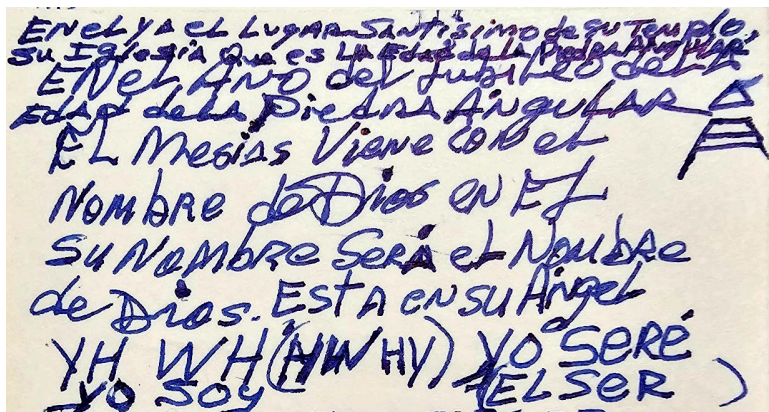 EN el Y A el LugAR SANtísimo de su Templo,
Su Iglesia Que es LA EdAd de LA PiedRA ANgulAR
EN el AÑO del Jubileo de LA
EDAD de LA PiedRA ANgulAR
EL Mesías Viene CON el
NOMbRE de Dios EN EL
Su NOMbRE SeRÁ el NOMbRE
de Dios. ESTA en su Ángel
YH WH (HW HY) YO SERÉ
YO SOY (EL SER )